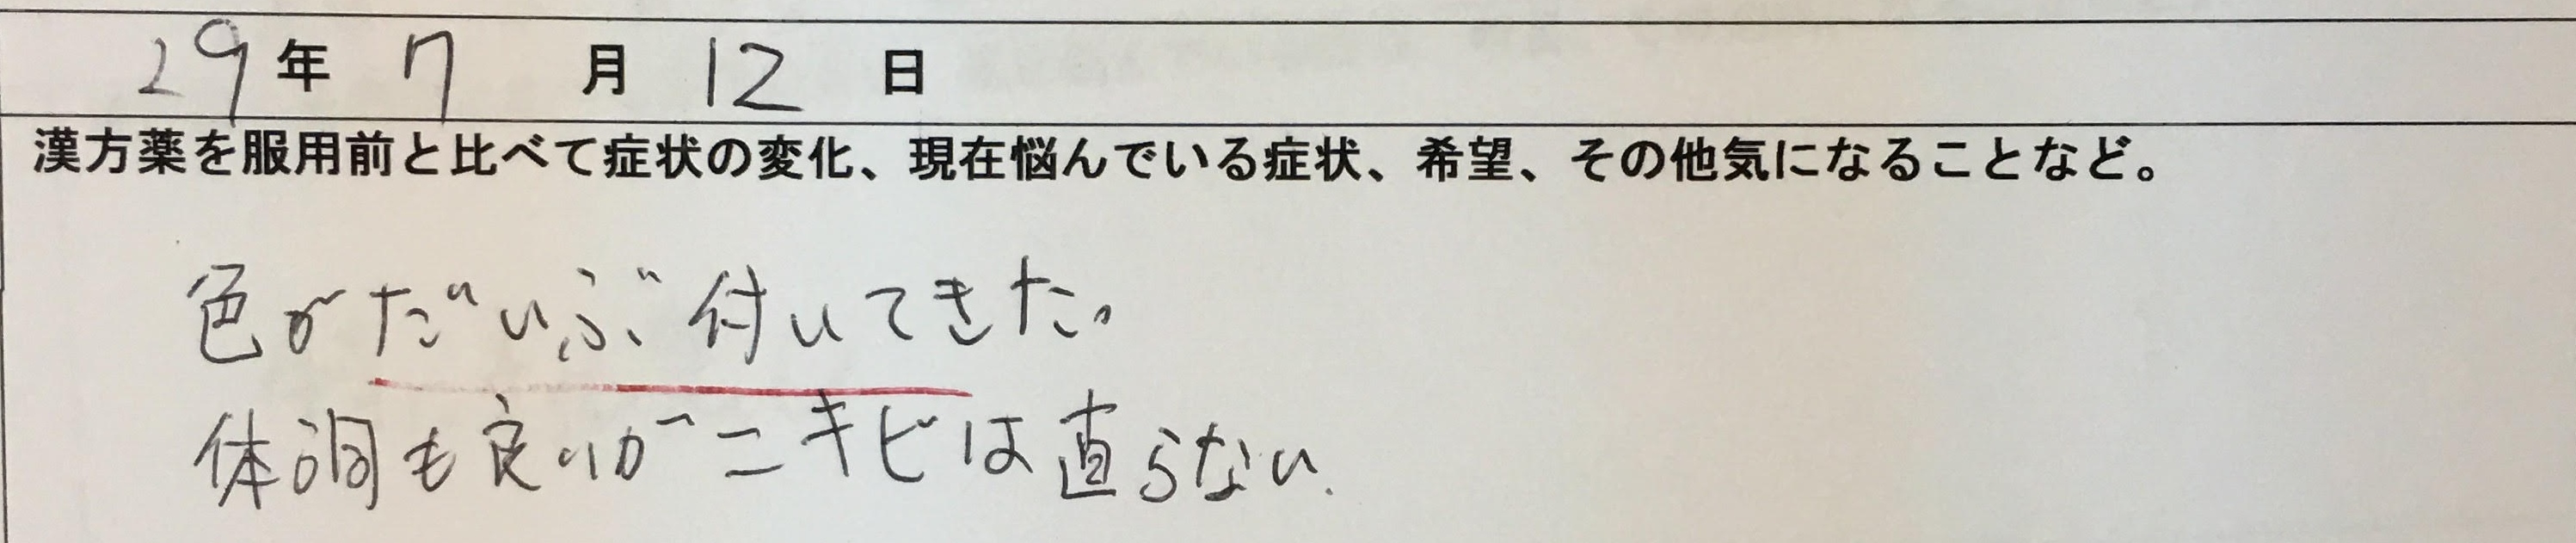 29年 7月 12日
漢方薬を服用前と比べて症状の変化、現在悩んでいる症状、希望、その他気になることなど。
色がだいぶ付いてきた。
体調も良いがニキビは直らない.